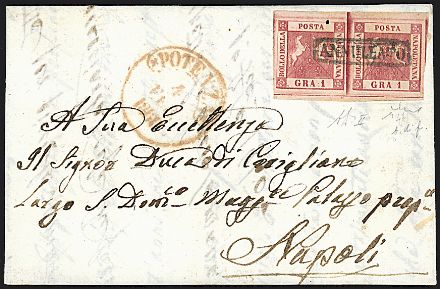 POSTA POSTA
BOLLO DELLA NAPOLETANA BOLLO DELLA NAPOLETANA
ANNULLATO
GRA 1 GRA 1
POTENZA
A Sua Eccellenza
Il Signor Duca di Corigliano
Largo S Dom.co Magg.re Palazzo prop.o
Napoli